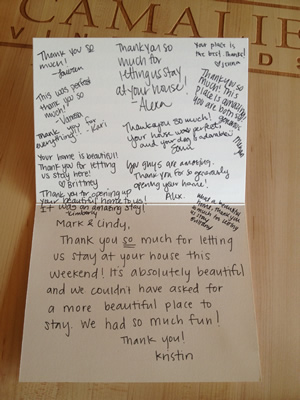 CAMALIE
Thank you so
much!
-Lauren
This was perfect
thank you so
much!
-Vanessa
Thank you for
everything! - Kari
Your home is beautiful!
Thank you for letting
us stay here!
Brittney
Thank you for opening up
your beautiful home to us!
It was an amazing stay!
-Kimberly
Thank you so
much for
letting us stay
at your house!
- Alexa
Thank you so much!
Your house was perfect,
and your dog is adorable
You guys are amazing.
Thank you for so generously
opening your home!
Alex.
Your place is
the best. Thanks!
Jenna
Thank you so
much! This
place is amazing
you are both so
generous
Mark & Cindy,
Thank you so much for letting
us stay at your house this
weekend! It's absolutely beautiful
and we couldn't have asked for
a more beautiful place to
stay. We had so much fun!
Thank you!
Kristin